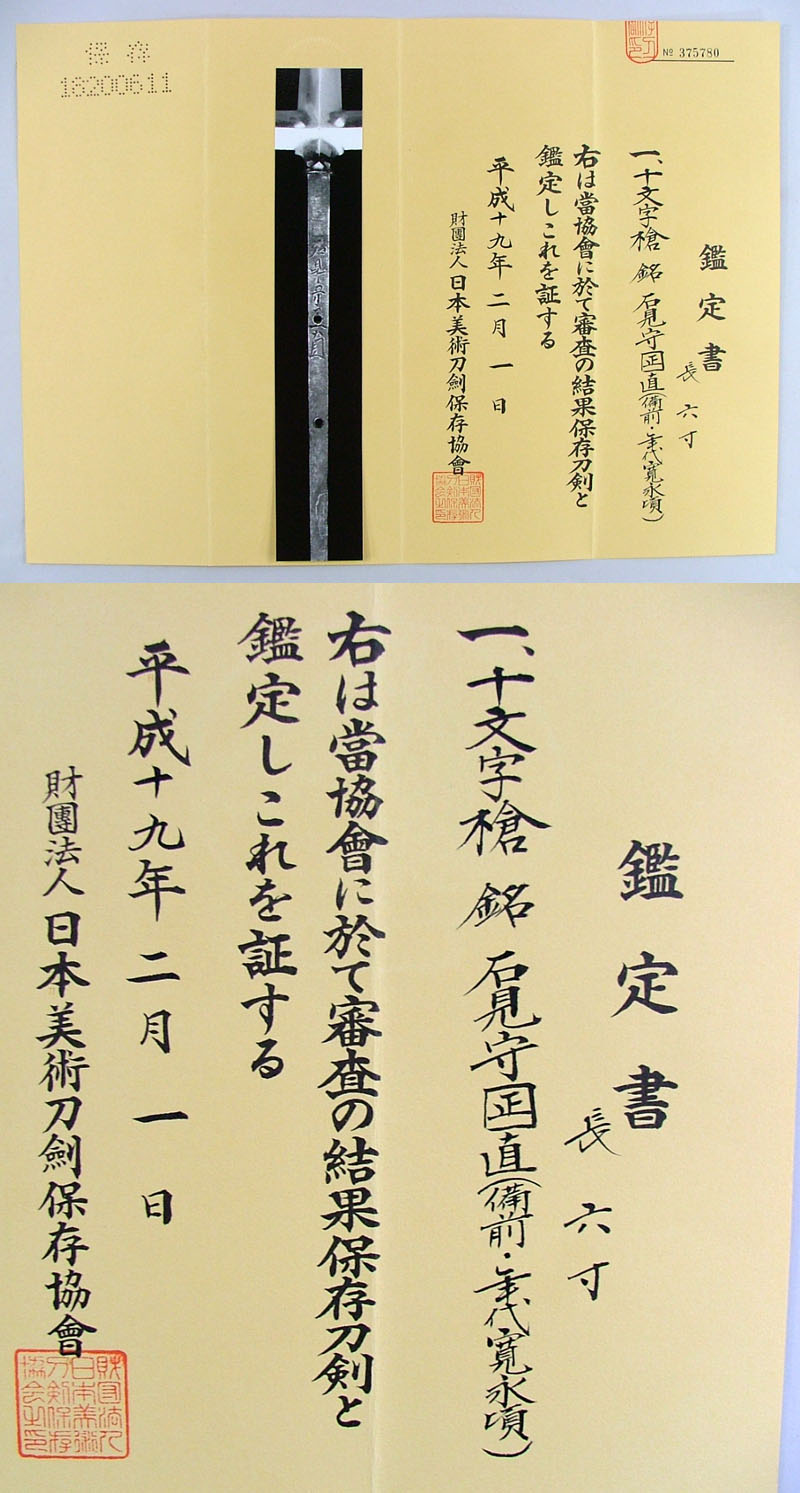 保存
16200611
№ 375780
鑑定書
長 六寸
一、十文字槍 銘 石見守正直(備前・年代寛永頃)
右は當協會に於て審査の結果保存刀剣と
鑑定しこれを証する
平成十九年二月一日
財團法人日本美術刀劍保存協會
財団法人日本美術刀剣保存協会之印
鑑定書
長 六寸
一、十文字槍 銘 石見守正直(備前・年代寛永頃)
右は當協會に於て審査の結果保存刀剣と
鑑定しこれを証する
平成十九年二月一日
財團法人日本美術刀劍保存協會
財団法人日本美術刀剣保存協会之印